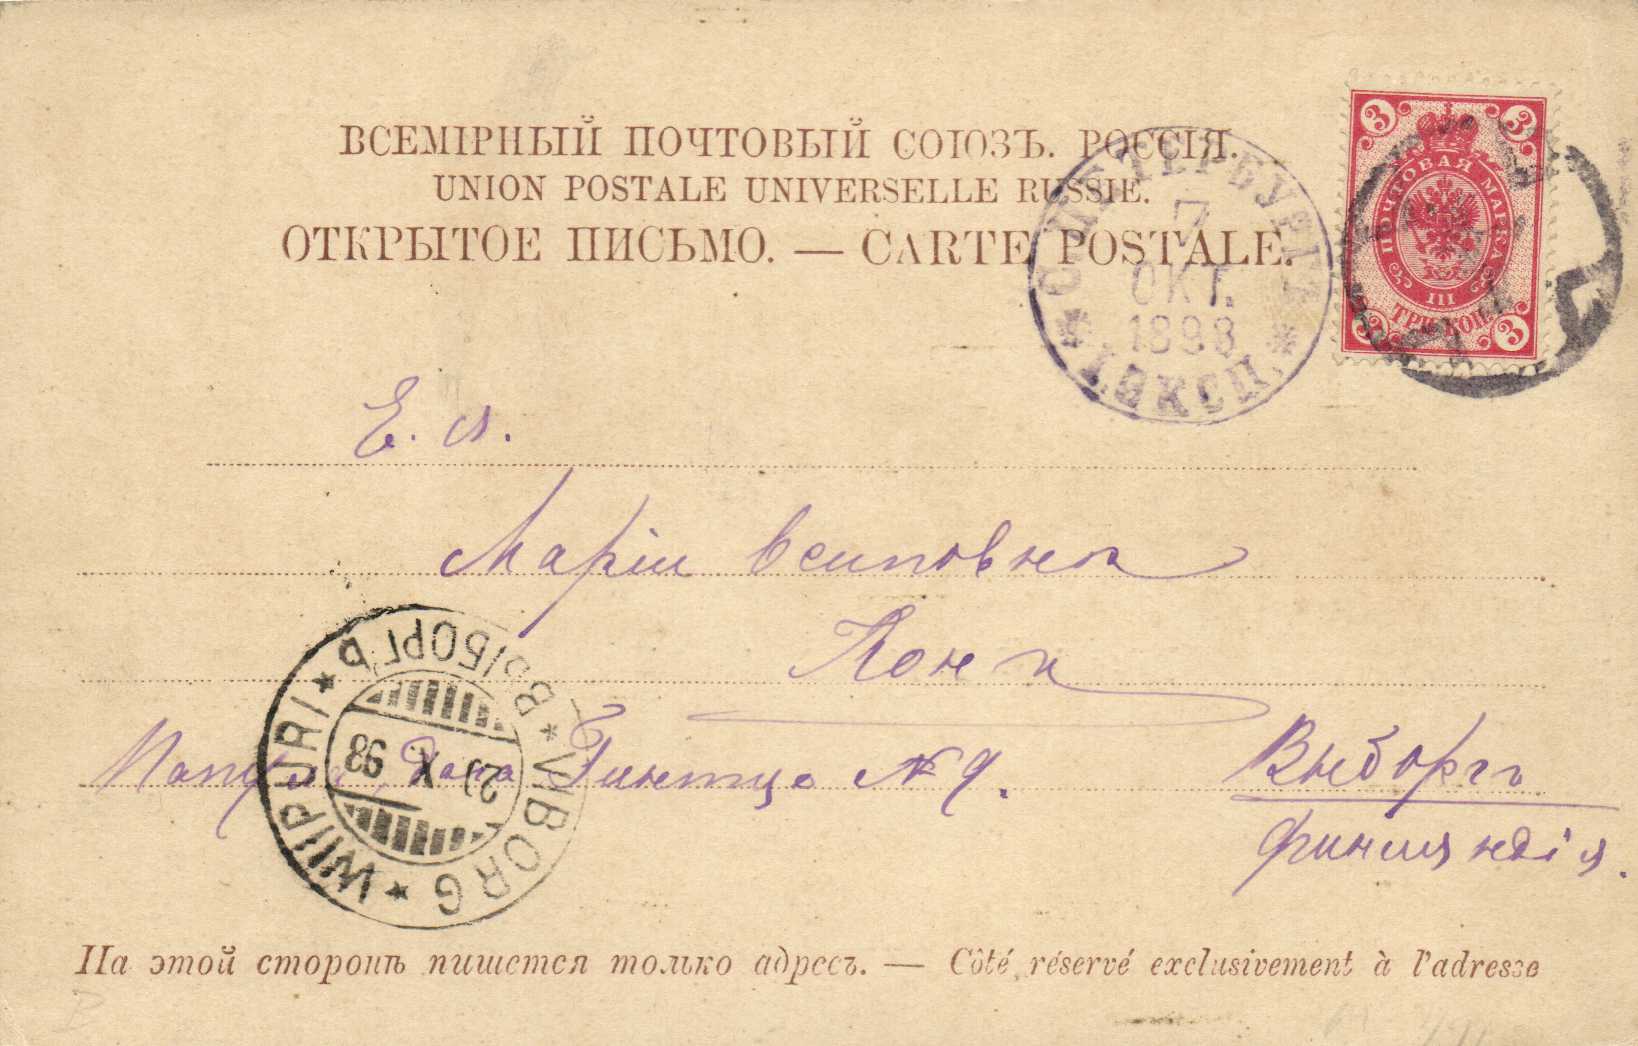 ВСЕМІРНЫЙ ПОЧТОВЫЙ СОЮЗЪ. РОССІЯ.
UNION POSTALE UNIVERSELLE RUSSIE.
ОТКРЫТОЕ ПИСЬМО. — CARTE POSTALE.
С.ПЕТЕРБУРГЪ
7
ОКТ.
1898
1. ЭКСП.
3 3
ПОЧТОВАЯ МАРКА
III
ТРИ КОП.
3 3
Е. В.
Маріи Осиповнѣ
Кони
Дача № 9.
Выборгъ
Финляндія.
ВЫБОРГЪ
WIIPURI
VIBORG
X 98
На этой сторонѣ пишется только адресъ. — Côté réservé exclusivement à l'adresse